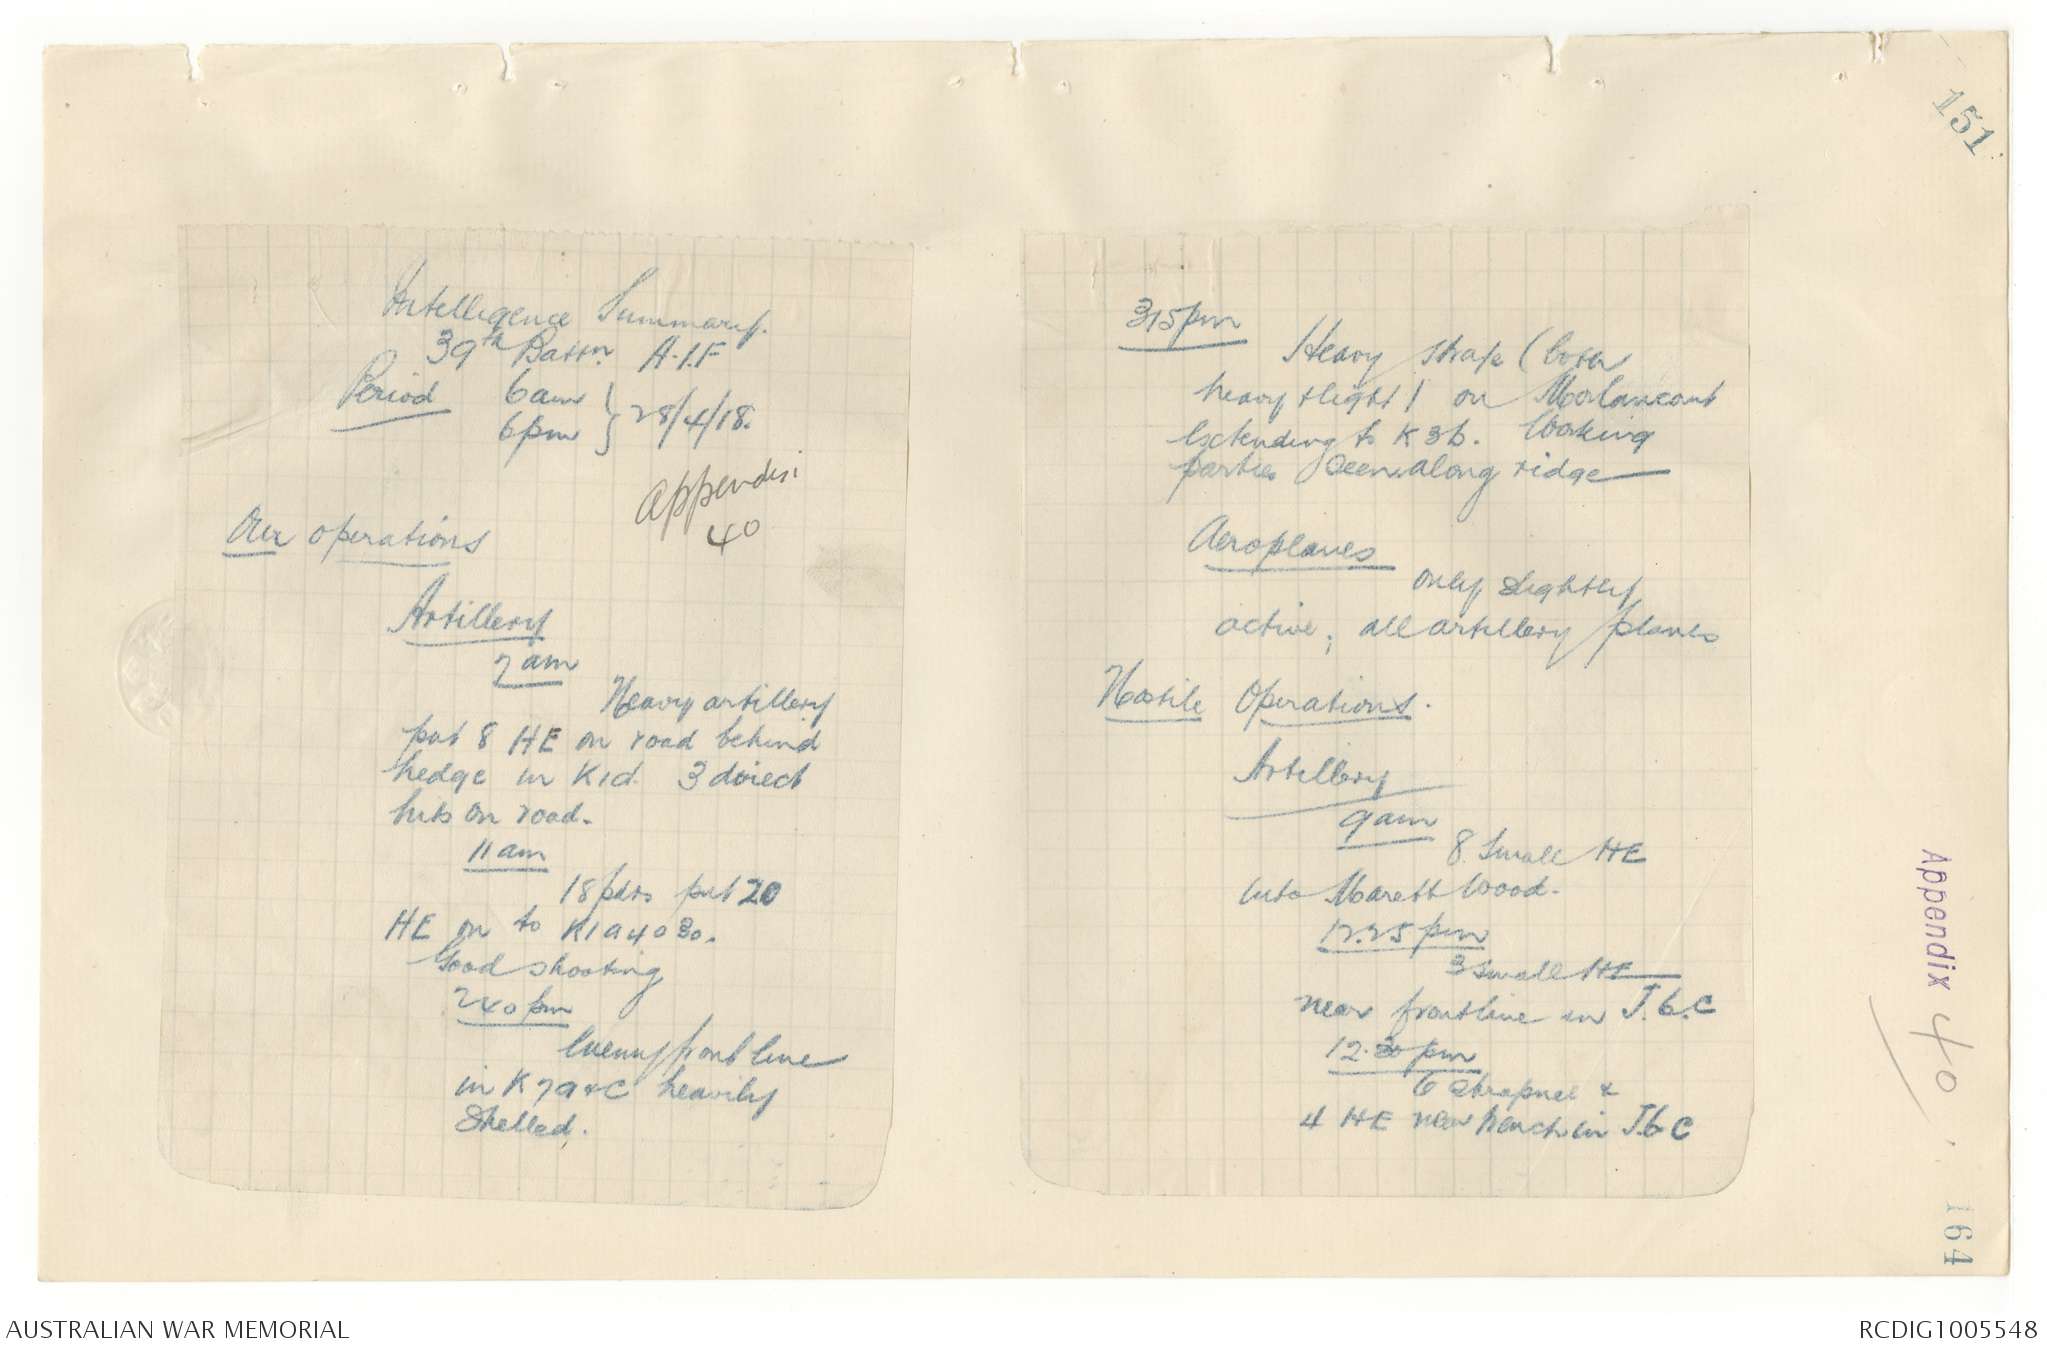 151
Intelligence Summary.
39th Battn. A.I.F
Period 6am
6pm } 28/4/18.
Appendix
40
Our operations
Artillery
7am
Heavy artillery
put 8 HE on road behind
hedge in K1d. 3 direct
hits on road.
11am
18pdrs put 20
HE on to K1a4030.
Good shooting
240pm
Enemy front line
in K7a&C heavily
Shelled.
315pm
Heavy strafe (both
heavy & light) on Morlancourt
Extending to K3b. Working
parties seen along ridge
Aeroplanes
only slightly
active; all artillery planes
Hostile Operations.
Artillery
9am
8 Small HE
into Marett Wood.
12.25pm
3 small HE
near frontline in J.6.C
12.30pm
6 shrapnel &
4 HE near trench in J.6C
Appendix 40
164
AUSTRALIAN WAR MEMORIAL
RCDIG1005548